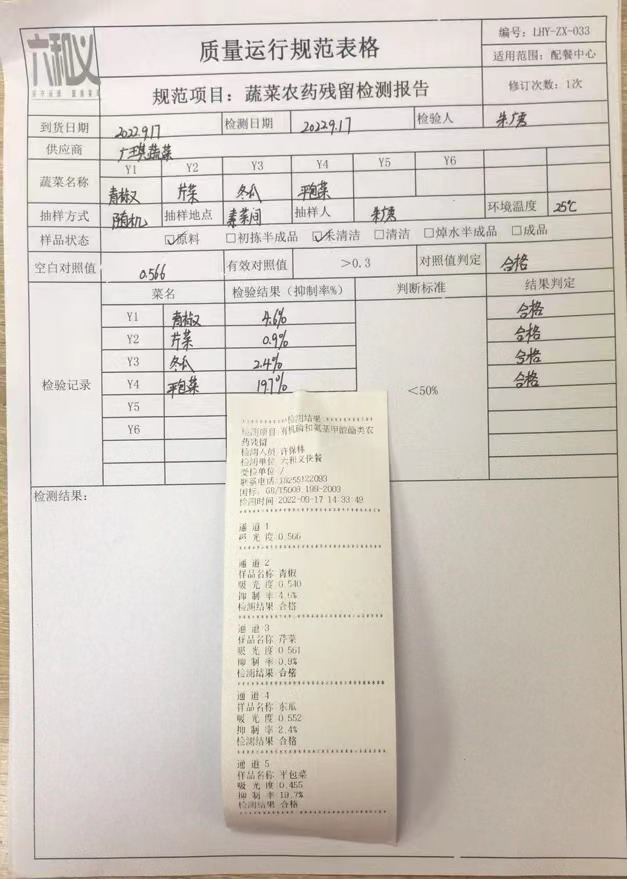 六和义
质量运行规范表格
编号：LHY-ZX-033
适用范围：配餐中心
规范项目：蔬菜农药残留检测报告
修订次数：1次
到货日期 2022.9.17 检测日期 2022.9.17 检验人
供应商
蔬菜名称 Y1 Y2 Y3 Y4 Y5 Y6
青椒 芹菜 冬瓜 平包菜
抽样方式 随机 抽样地点 素菜间 抽样人 环境温度 25℃
样品状态 ☑原料 □初拣半成品 ☑未清洁 □清洁 □焯水半成品 □成品
空白对照值 0.566 有效对照值 >0.3 对照值判定 合格
检验记录 菜名 检验结果（抑制率%） 判断标准 结果判定
Y1 青椒 4.6% 合格
Y2 芹菜 0.9% 合格
Y3 冬瓜 2.4% 合格
Y4 平包菜 19.7% 合格
<50%
Y5
Y6
检测结果：
检测结果
检测项目:有机磷和氨基甲酸酯类农
药残留
检测人员:许保林
检测单位:六和义快餐
受检单位:/
联系电话:18255122093
国标: GB/T5009.199-2003
检测时间:2022-09-17 14:33:49
通 道 1
吸 光 度:0.566
通 道 2
样品名称:青椒
吸 光 度:0.540
抑 制 率:4.6%
检测结果:合格
通 道 3
样品名称:芹菜
吸 光 度:0.561
抑 制 率:0.9%
检测结果:合格
通 道 4
样品名称:东瓜
吸 光 度:0.552
抑 制 率:2.4%
检测结果:合格
通 道 5
样品名称:平包菜
吸 光 度:0.455
抑 制 率:19.7%
检测结果:合格